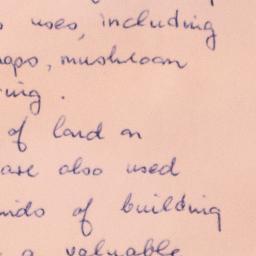 uses, including
mushroom
of land on
are also used
of building
a valuable